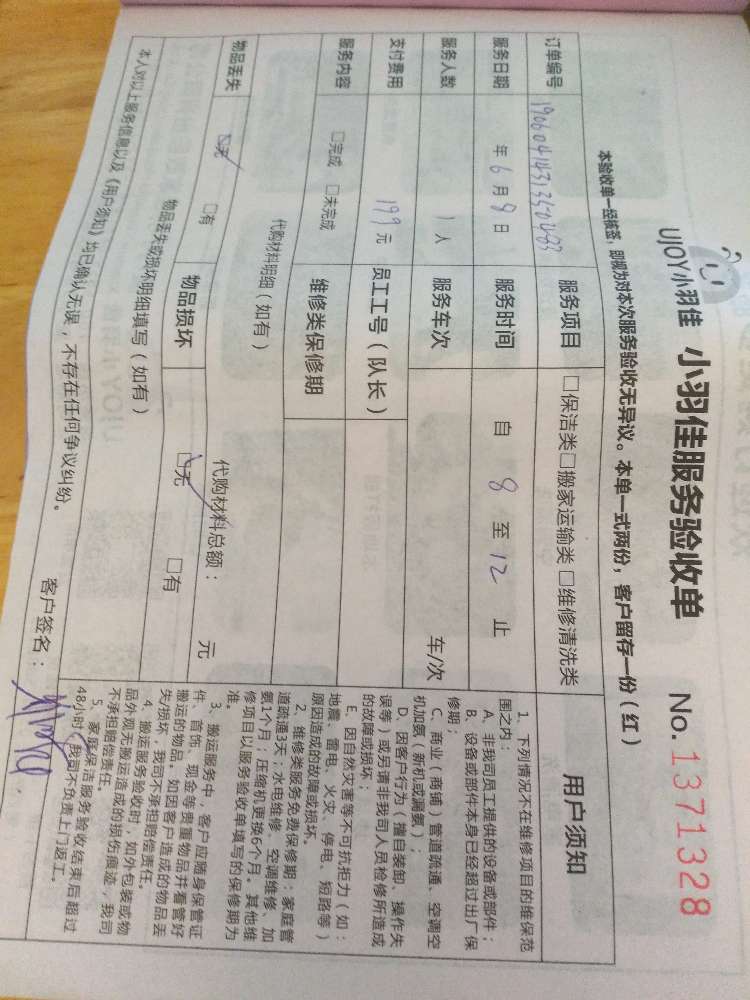 UJOY小羽佳 小羽佳服务验收单 No. 1371328
本验收单一经核签，即视为对本次服务验收无异议。本单一式两份，客户留存一份（红）
订单编号 服务项目 □保洁类□搬家运输类 □维修清洗类
服务日期 年 6 月 8 日 服务时间 自 8 至 12 止
服务人数 1 人 服务车次 车/次
支付费用 199 元 员工工号（队长）
服务内容 □完成 □未完成 维修类保修期
代购材料明细（如有） 代购材料总额： 元
物品丢失 ☑无 □有 物品损坏 ☑无 □有
物品丢失或损坏明细填写（如有）
本人对以上服务信息以及《用户须知》均已确认无误，不存在任何争议纠纷。
客户签名：
用户须知
1、下列情况不在维修项目的维保范
围之内：
A、非我司员工提供的设备或部件；
B、设备或部件本身已经超过出厂保
修期；
C、商业（商铺）管道疏通、空调空
机加氨（新机或漏氨）；
D、因客户行为（擅自装卸、操作失
误等）或另请非我司人员检修所造成
的故障或损坏；
E、因自然灾害等不可抗拒力（如：
地震、雷电、火灾、停电、短路等）
原因造成的故障或损坏。
2、维修类服务免费保修期：家庭管
道疏通3天；水电维修、空调维修、加
氨1个月；压缩机更换6个月。其他维
修项目以服务验收单填写的保修期为
准。
3、搬运服务中，客户应随身保管证
件、首饰、现金等贵重物品并看管好
搬运的物品，如因客户造成的物品丢
失/损坏，我司不承担赔偿责任。
4、搬运服务验收时，如外包装或物
品外观无搬运造成的损伤痕迹，我司
不承担赔偿责任。
5、家庭保洁服务验收结束后超过
48小时，我司不负责上门返工。